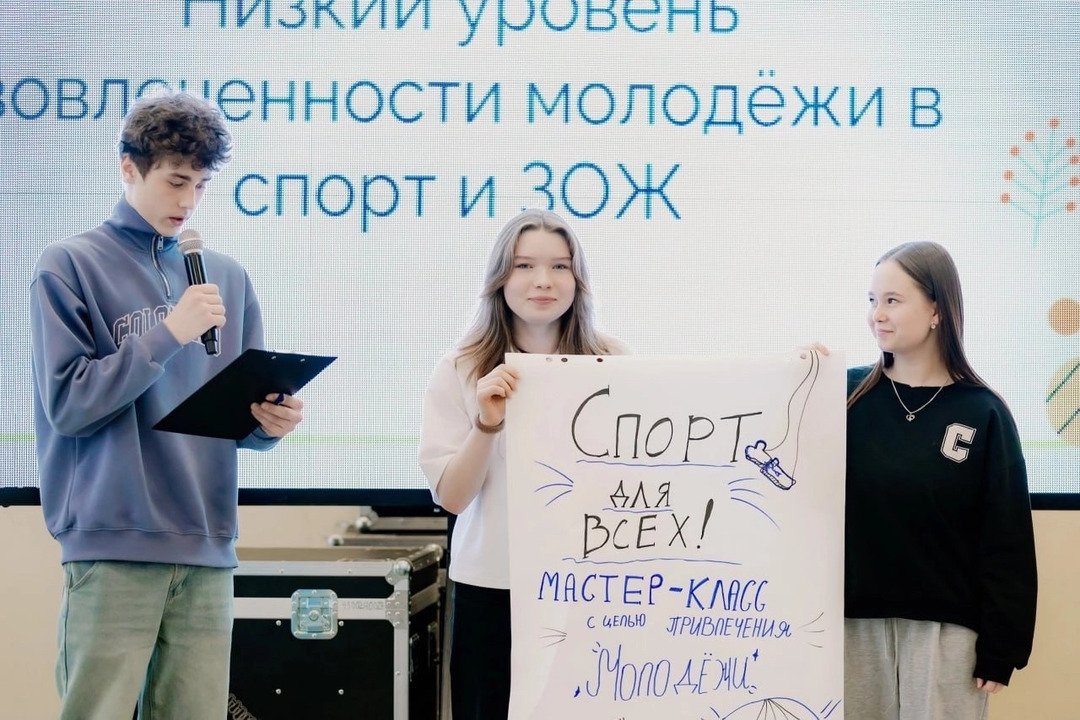 Низкий уровень
вовлеченности молодёжи в
спорт и ЗОЖ
Спорт
для
всех!
Мастер-класс
с целью привлечения
молодёжи
C